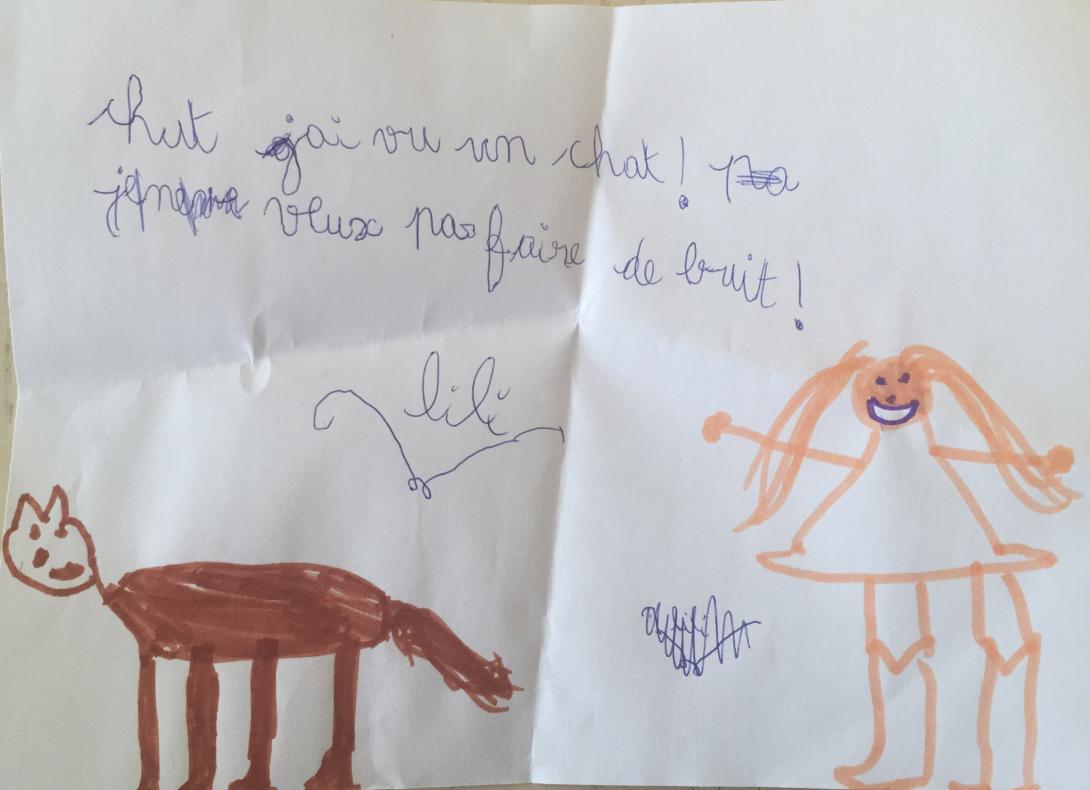 chut jai vu un chat!
veux pas faire de bruit!
lili